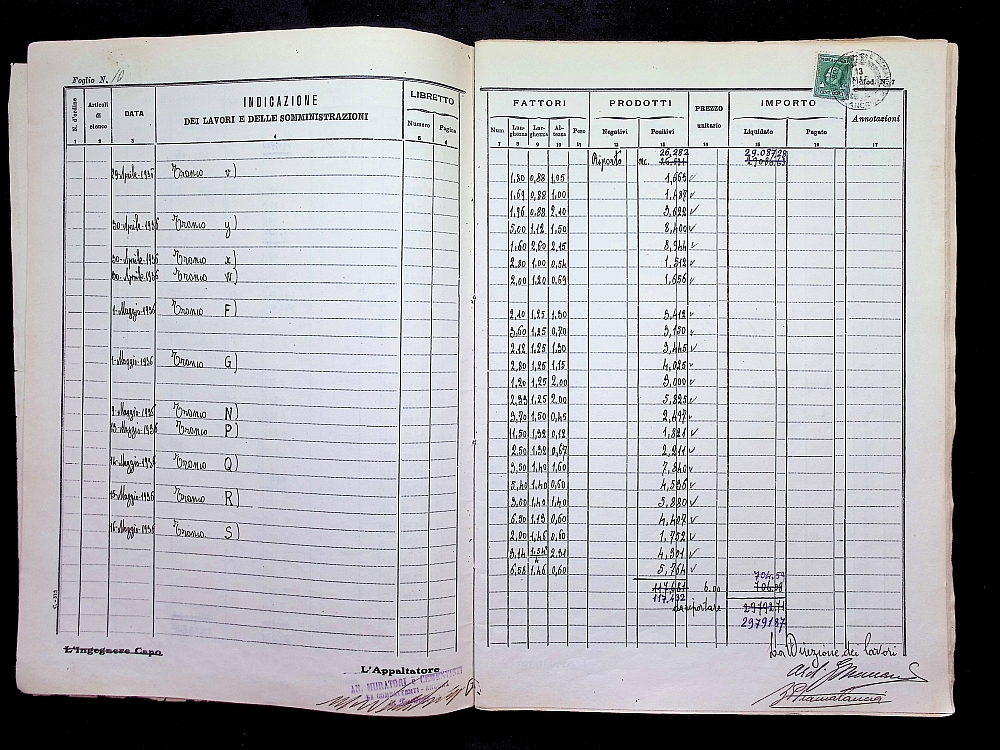 Foglio N. 10
N. d'ordine
Articoli di elenco
DATA
INDICAZIONE
DEI LAVORI E DELLE SOMMINISTRAZIONI
LIBRETTO
Numero
Pagina
1 2 3 4 5 6
29-Aprile-1936 Tronco v)
30-Aprile-1936 Tronco y)
30-Aprile-1936 Tronco x)
30-Aprile-1936 Tronco W)
1-Maggio-1936 Tronco F)
1-Maggio-1936 Tronco G)
2-Maggio-1936 Tronco N)
13-Maggio-1936 Tronco P)
14-Maggio-1936 Tronco Q)
15-Maggio-1936 Tronco R)
16-Maggio-1936 Tronco S)
L'Ingegnere Capo
L'Appaltatore
FATTORI
PRODOTTI
PREZZO unitario
IMPORTO
Annotazioni
Num
Lunghezza
Larghezza
Altezza
Peso
Negativi
Positivi
Liquidato
Pagato
7 8 9 10 11 12 13 14 15 16 17
Riporto mc. 26,282 29.087,28
1,80 0,88 1,05 1,663
1,69 0,88 1,00 1,487
1,96 0,88 2,10 3,622
5,00 1,12 1,50 8,400
1,60 2,60 2,15 8,944
2,80 1,00 0,54 1,512
2,00 1,20 0,69 1,656
2,10 1,25 1,30 3,412
3,60 1,25 0,70 3,150
2,12 1,25 1,30 3,445
2,80 1,25 1,15 4,025
1,20 1,25 2,00 3,000
2,33 1,25 2,00 5,825
3,70 1,50 0,45 2,497
11,50 1,32 0,12 1,821
2,50 1,32 0,67 2,211
3,50 1,40 1,60 7,840
5,40 1,40 0,60 4,536
3,00 1,40 1,40 5,880
6,50 1,13 0,60 4,407
2,00 1,46 0,60 1,752
6,58 1,46 0,60 5,764
704,59
6.00
117,432
da riportare
29791,87
La Direzione dei lavori